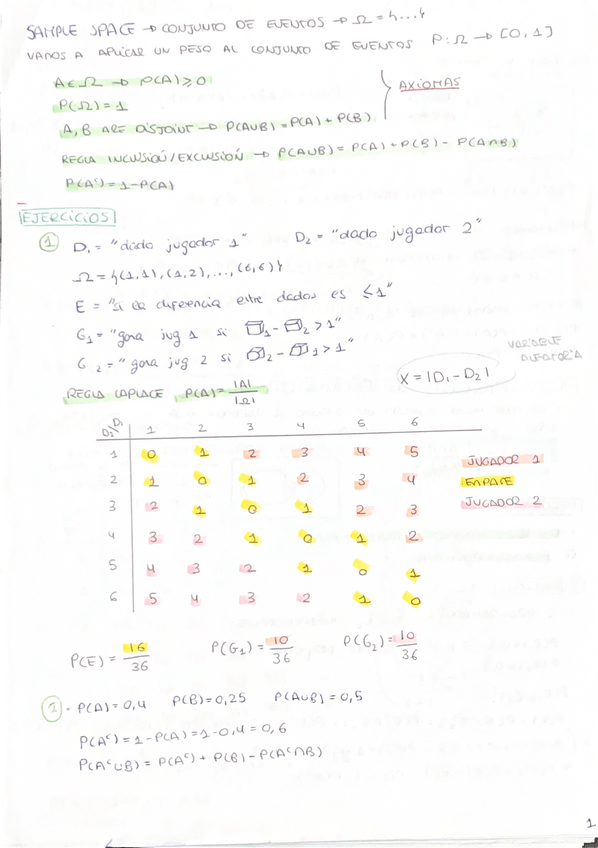 SAMPLE SPACE → CONJUNTO DE EVENTOS → Ω = {...}
VAMOS A APLICAR UN PESO AL CONJUNTO DE EVENTOS P: Ω → [0,1]
A ∈ Ω → P(A) ≥ 0
P(Ω) = 1
AXIOMAS
A, B ARE DISJOINT → P(A∪B) = P(A) + P(B)
REGLA INCLUSIÓN/EXCLUSIÓN → P(A∪B) = P(A) + P(B) - P(A∩B)
P(Aᶜ) = 1 - P(A)
EJERCICIOS
1 D₁ = "dado jugador 1" D₂ = "dado jugador 2"
Ω = {(1,1), (1,2), ..., (6,6)}
E = "si la diferencia entre dados es ≤ 1"
G₁ = "gana jug 1 si ₁ - ₂ > 1"
G₂ = "gana jug 2 si ₂ - ₁ > 1"
VARIABLE ALEATORIA
X = |D₁ - D₂|
REGLA LAPLACE P(A) = |A| / |Ω|
D₂\D₁ 1 2 3 4 5 6
1 0 1 2 3 4 5
2 1 0 1 2 3 4
3 2 1 0 1 2 3
4 3 2 1 0 1 2
5 4 3 2 1 0 1
6 5 4 3 2 1 0
JUGADOR 1
EMPATE
JUGADOR 2
P(E) = 16/36 P(G₁) = 10/36 P(G₂) = 10/36
2 - P(A) = 0,4 P(B) = 0,25 P(A∪B) = 0,5
P(Aᶜ) = 1 - P(A) = 1 - 0,4 = 0,6
P(Aᶜ∪B) = P(Aᶜ) + P(B) - P(Aᶜ∩B)
1